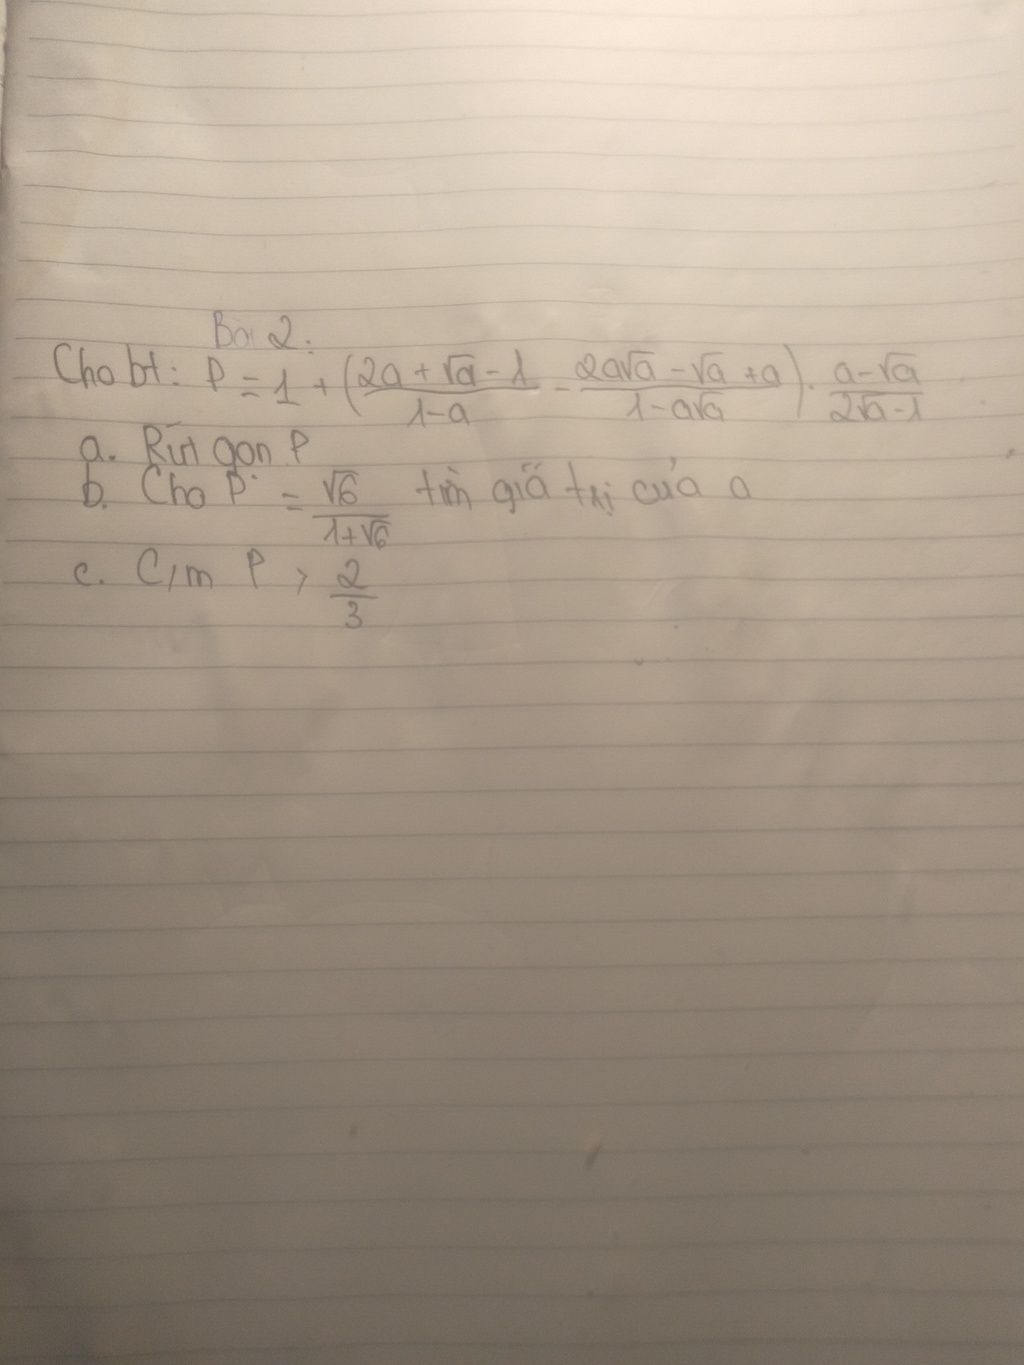 Bài 2:
Cho bt: P = 1 + (\frac{2a + √a - 1}{1 - a} - \frac{2a√a - √a + a}{1 - a√a}) . \frac{a - √a}{2√a - 1}
a. Rút gọn P
b. Cho P = \frac{√6}{1 + √6} tìm giá trị của a
c. C/m P > \frac{2}{3}